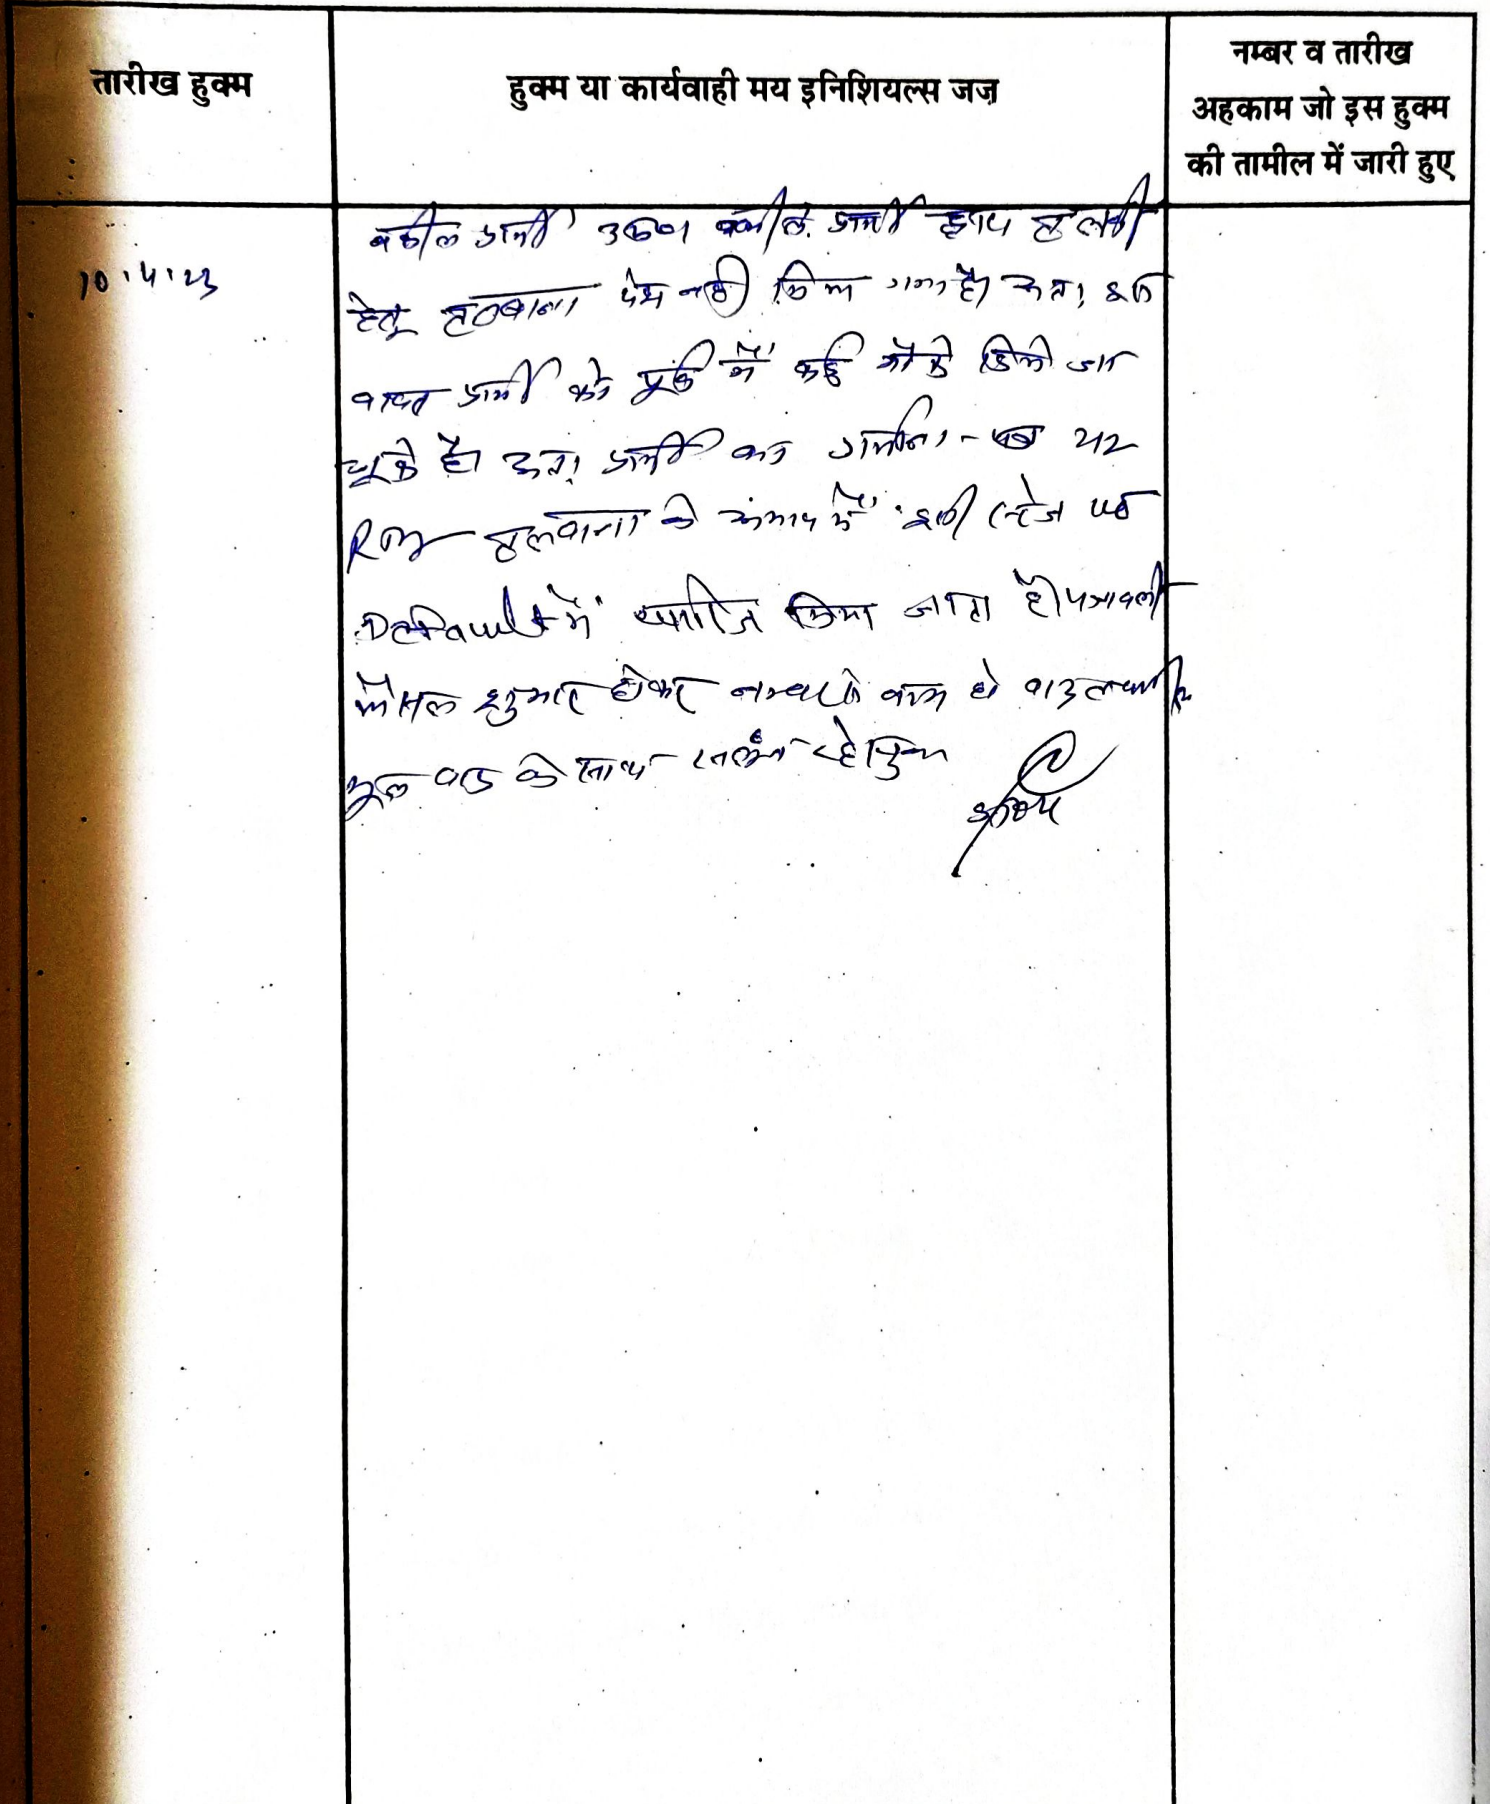 तारीख हुक्म
हुक्म या कार्यवाही मय इनिशियल्स जज
नम्बर व तारीख
अहकाम जो इस हुक्म
की तामील में जारी हुए
10.4.23
वकील प्रार्थी उप० वकील प्रार्थी द्वारा तलबी
हेतू तलबाना पेश नही किया गया है। अतः इस
बाबत प्रार्थी को पूर्व में कई मौके दिये जा
चूके है। अतः प्रार्थी का प्रार्थना-पत्र
तलबाना के अभाव में इसी स्टेज पर
Default में खारिज किया जाता है। पत्रावली
फैसल शुमार होकर नम्बर से कम हो
मूल वाद के साथ संलग्न रहे।